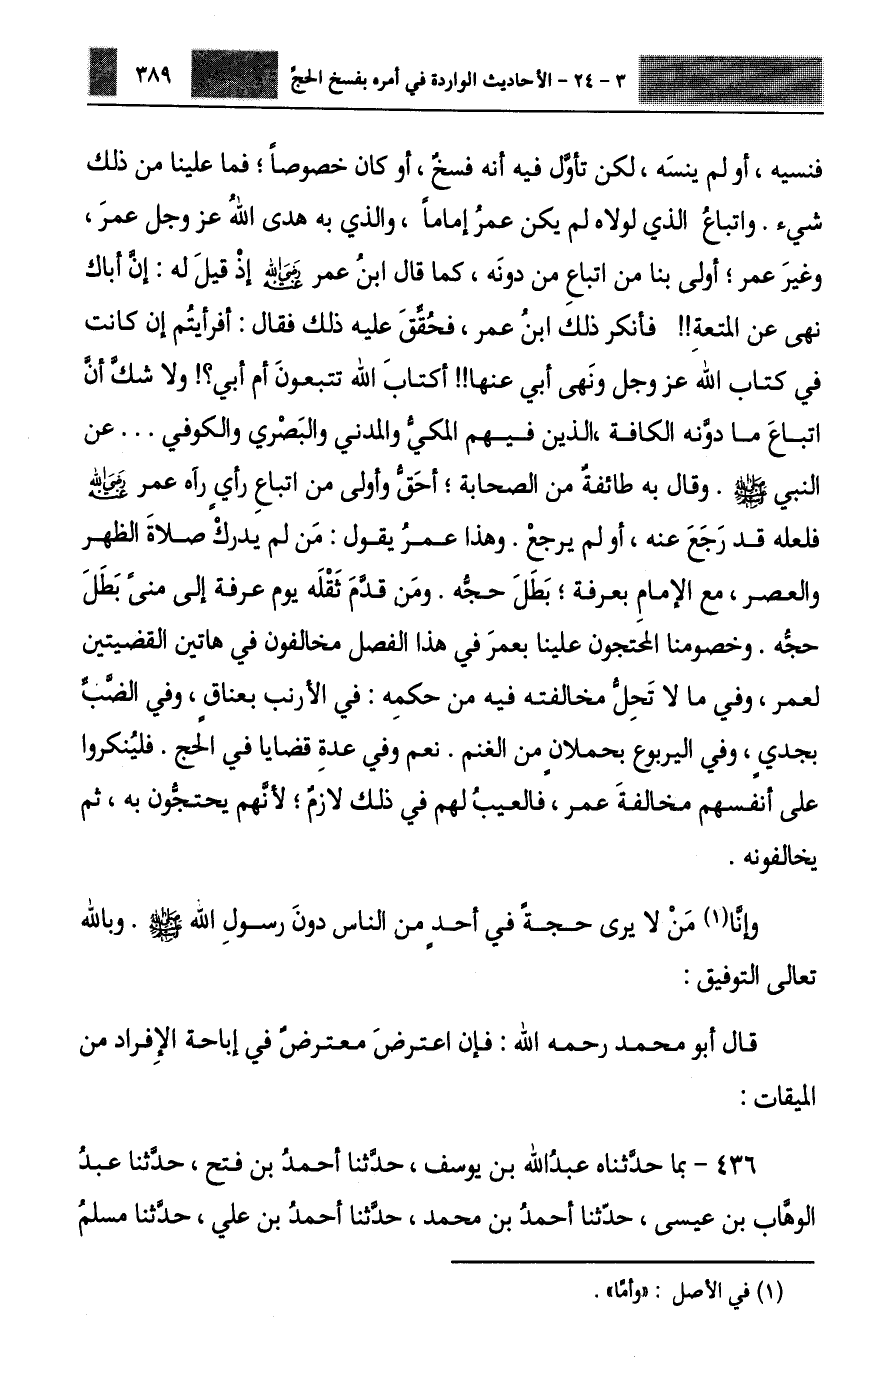 ٣ - ٢٤ - الأحاديث الواردة في أمره بفسخ الحجّ ٣٨٩
فنسيه ، أو لم ينسَه ، لكن تأوَّل فيه أنه فسخٌ ، أو كان خصوصاً ؛ فما علينا من ذلك
شيء . واتباعُ الذي لولاه لم يكن عمرُ إماماً ، والذي به هدى اللهُ عز وجل عمرَ ،
وغيرَ عمر ؛ أولى بنا من اتباعِ من دونَه ، كما قال ابنُ عمر رضي الله عنه إذْ قيلَ له : إنَّ أباك
نهى عن المتعةِ!! فأنكر ذلك ابنُ عمر ، فحُقِّقَ عليه ذلك فقال : أفرأيتُم إن كانت
في كتاب الله عز وجل ونَهى أبي عنها!! أكتابَ الله تتبعونَ أم أبي؟! ولا شكَّ أنَّ
اتباعَ ما دوَّنه الكافة ،الذين فيهم المكيُّ والمدني والبَصْري والكوفي ... عن
النبي ﷺ . وقال به طائفةٌ من الصحابة ؛ أحَقُّ وأولى من اتباعِ رأيٍ رآه عمر رضي الله عنه
فلعله قد رَجَعَ عنه ، أو لم يرجعْ . وهذا عمرُ يقول : مَن لم يدركْ صلاةَ الظهر
والعصر ، مع الإمامِ بعرفة ؛ بَطَلَ حجُّه . ومَن قدَّمَ ثَقْلَه يوم عرفة إلى منىً بَطَلَ
حجُّه . وخصومنا المحتجون علينا بعمرَ في هذا الفصل مخالفون في هاتين القضيتين
لعمر ، وفي ما لا تَحِلُّ مخالفته فيه من حكمِه : في الأرنب بعناقٍ ، وفي الضَّبِّ
بجديٍ ، وفي اليربوع بحملانٍ من الغنم . نعم وفي عدةِ قضايا في الحج . فليُنكروا
على أنفسهم مخالفةَ عمر ، فالعيبُ لهم في ذلك لازمٌ ؛ لأنَّهم يحتجُّون به ، ثم
يخالفونه .
وإنَّا(١) مَنْ لا يرى حجةً في أحدٍ من الناس دونَ رسولِ الله ﷺ . وبالله
تعالى التوفيق :
قال أبو محمد رحمه الله : فإن اعترضَ معترضٌ في إباحة الإفراد من
الميقات :
٤٣٦ - بما حدَّثناه عبدُالله بن يوسف ، حدَّثنا أحمدُ بن فتح ، حدَّثنا عبدُ
الوهَّاب بن عيسى ، حدّثنا أحمدُ بن محمد ، حدَّثنا أحمدُ بن علي ، حدَّثنا مسلمُ
(١) في الأصل : «وأمَّا» .